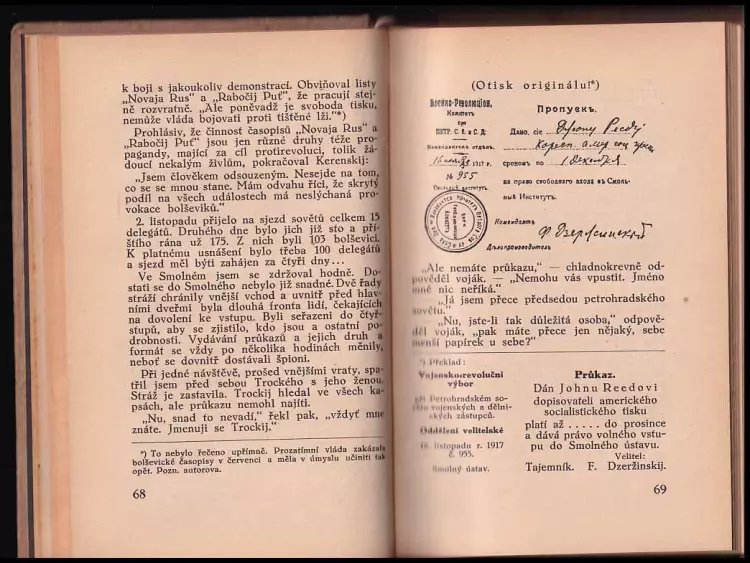 k boji s jakoukoliv demonstrací. Obviňoval listy
„Novaja Rus“ a „Rabočij Puť“, že pracují stej-
ně rozvratně. „Ale poněvadž je svoboda tisku,
nemůže vláda bojovati proti tištěné lži.“*)
Prohlásiv, že činnost časopisů „Novaja Rus“ a
„Rabočij Puť“ jsou jen různé druhy téže pro-
pagandy, mající za cíl protirevoluci, tolik žá-
doucí nekalým živlům, pokračoval Kerenskij:
„Jsem člověkem odsouzeným. Nesejde na tom,
co se se mnou stane. Mám odvahu říci, že skrytý
podíl na všech událostech má neslýchaná pro-
vokace bolševiků.“
2. listopadu přijelo na sjezd sovětů celkem 15
delegátů. Druhého dne bylo jich již sto a pří-
štího rána už 175. Z nich byli 103 bolševici.
K platnému usnášení bylo třeba 100 delegátů
a sjezd měl býti zahájen za čtyři dny...
Ve Smolném jsem se zdržoval hodně. Do-
stati se do Smolného nebylo již snadné. Dvě řady
stráží chránily vnější vchod a uvnitř před hlav-
ními dveřmi byla dlouhá fronta lidí, čekajících
na dovolení ke vstupu. Byli seřazeni do čtyř-
stupů, aby se zjistilo, kdo jsou a ostatní po-
drobnosti. Vydávání průkazů a jejich druh a
formát se vždy po několika hodinách měnily,
neboť se dovnitř dostávali špioni.
Při jedné návštěvě, prošed vnějšími vraty, spa-
třil jsem před sebou Trockého s jeho ženou.
Stráž je zastavila. Trockij hledal ve všech ka-
psách, ale průkazu nemohl najíti.
„Nu, snad to nevadí,“ řekl pak, „vždyť mne
znáte. Jmenuji se Trockij.“
*) To nebylo řečeno upřímně. Prozatímní vláda zakázala
bolševické časopisy v červenci a měla v úmyslu učiniti tak
opět. Pozn. autorova.
68
(Otisk originálu!*)
Военно-Революціон.
Комитетъ
при
ПЕТР. С. Р. и С. Д.
Комендантскій отдѣлъ.
16 ноября 1917 г.
№ 955
Смольный институтъ.
Пропускъ.
Дано, сіе Джону Риду
корресп. амер. соц. прессы
срокомъ по 1 Декабря
на право свободнаго входа въ Смоль-
ный Институтъ.
Комендантъ
Ф Дзержинскій
Дѣлопроизводитель
„Ale nemáte průkazu,“ — chladnokrevně od-
pověděl voják. — „Nemohu vás vpustit. Jméno
mně nic neříká.“
„Já jsem přece předsedou petrohradského
sovětu.“
„Nu, jste-li tak důležitá osoba,“ odpově-
děl voják, „pak máte přece jen nějaký, sebe
menší papírek u sebe?“
*) Překlad:
Vojenskorevoluční
výbor
při Petrohradském so-
větu vojenských a dělni-
ckých zástupců.
Oddělení velitelské
16. listopadu r. 1917
č. 955.
Smolný ústav.
Průkaz.
Dán Johnu Reedovi
dopisovateli amerického
socialistického tisku
platí až ..... do prosince
a dává právo volného vstu-
pu do Smolného ústavu.
Velitel:
Tajemník. F. Dzeržinskij.
69